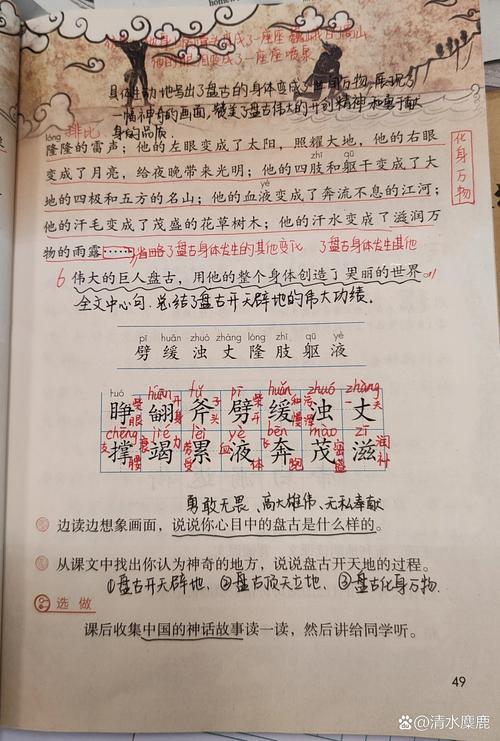 具体生动地写出了盘古的身体变成了世间万物,展现了
一幅神奇的画面,赞美了盘古伟大的开创精神和勇于献
身的品质.
排比
lóng
隆隆的雷声;他的左眼变成了太阳,照耀大地,他的右眼
变成了月亮,给夜晚带来光明;他的四肢和躯干变成了大
zhī qū
地的四极和五方的名山;他的血液变成了奔流不息的江河;
yè
他的汗毛变成了茂盛的花草树木;他的汗水变成了滋润万
物的雨露……省略了盘古身体发生的其他变化
了盘古身体发生其他
化身万物
6 伟大的巨人盘古,用他的整个身体创造了美丽的世界。
全文中心句.总结了盘古开天辟地的伟大功绩。
pī huǎn zhuó zhàng lóng zhī qū yè
劈 缓 浊 丈 隆 肢 躯 液
huó fān fǔ pī huǎn zhuó zhàng
睁 翻 斧 劈 缓 浊 丈
chēng jié lèi yè bēn mào zī
撑 竭 累 液 奔 茂 滋
勇敢无畏、高大雄伟、无私奉献
边读边想象画面,说说你心目中的盘古是什么样的。
从课文中找出你认为神奇的地方,说说盘古开天地的过程。
①盘古开天辟地、②盘古顶天立地、③盘古化身万物.
选做
课后收集中国的神话故事读一读,然后讲给同学听。
49
百家号/清水麋鹿